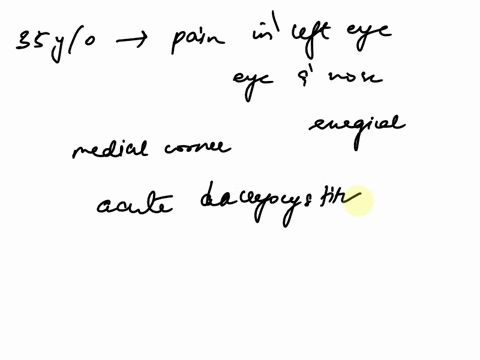 35 y/o → pain in left eye
eye & nose
medial corner
acute dacryocystitis